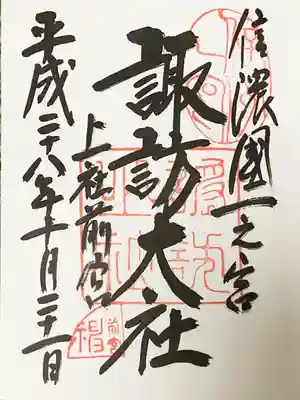 信濃國一之宮
諏訪大社
上社前宮
平成二十八年十月二十一日